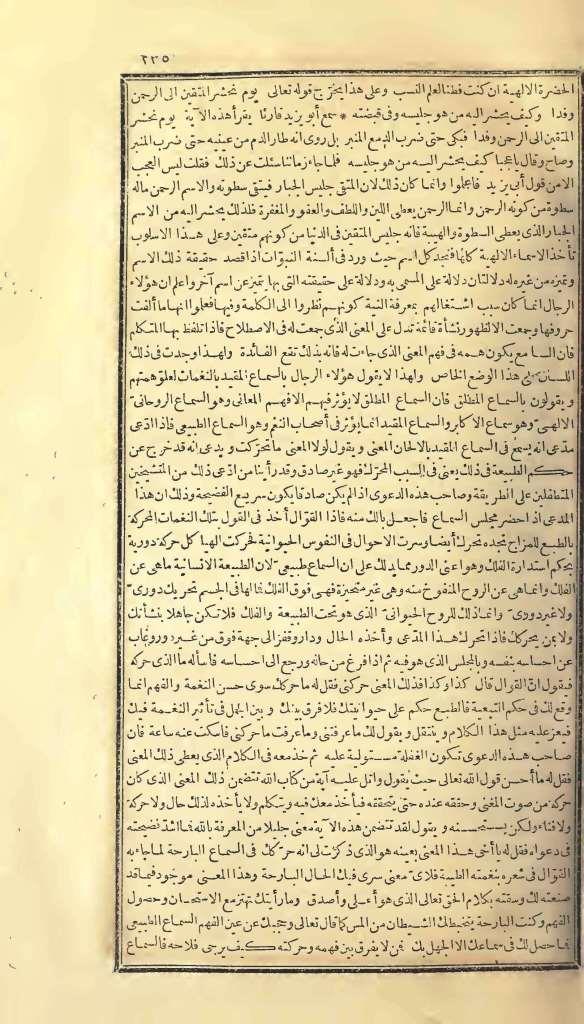 ٢٣٥
الحضرة الالهية ان كنت فطنا لعلم النسب وعلى هذا يخرج قوله تعالى يوم نحشر المتقين الى الرحمن
وفدا وكيف يحشر اليه من هو جليسه وفى قبضته * سمع أبو يزيد قارئا يقرأ هذه الآية يوم نحشر
المتقين الى الرحمن وفدا فبكى حتى ضرب الدمع المنبر بل روى انه طار الدم من عينيه حتى ضرب المنبر
وصاح وقال يا عجبا كيف يحشر اليه من هو جليسه فلما جاء زماننا سئلت عن ذلك فقلت ليس العجب
الا من قول أبى يزيد فاعلموا وانما كان ذلك لان المتقى جليس الجبار فيتقى سطوته والاسم الرحمن ماله
سطوة من كونه الرحمن وانما الرحمن يعطى اللين واللطف والعفو والمغفرة فلذلك يحشر اليه من الاسم
الجبار الذى يعطى السطوة والهيبة فانه جليس المتقين فى الدنيا من كونهم متقين وعلى هذا الاسلوب
تأخذ الاسماء الالهية كلها فتجد كل اسم حيث ورد فى ألسنة النبوات اذا قصد حقيقة ذلك الاسم
وتميزه من غيره له دلالتان دلالة على المسمى به ودلالة على حقيقته التى بها يتميز عن اسم آخر واعلم ان هؤلاء
الرجال انما كان سبب اشتغالهم بمعرفة النية كونهم نظروا الى الكلمة وفيها فعلموا انها ما ألفت
حروفها وجمعت الا لظهور نشأة قائمة تدل على المعنى الذى جمعت له فى الاصطلاح فاذا تلفظ بها المتكلم
فان السامع يكون همه فى فهم المعنى الذى جاءت له فانه بذلك تقع الفائدة ولهذا وجدت فى ذلك
اللسان على هذا الوضع الخاص ولهذا لا يقول هؤلاء الرجال بالسماع المقيد بالنغمات لعلو همتهم
ويقولون بالسماع المطلق فان السماع المطلق لا يؤثر فيهم الا فهم المعانى وهو السماع الروحانى
الالهى وهو سماع الاكابر والسماع المقيد انما يؤثر فى أصحاب النغم وهو السماع الطبيعى فاذا ادعى
مدعى انه يسمع فى السماع المقيد بالالحان المعنى ويقول لولا المعنى ما تحركت ويدعى انه قد خرج عن
حكم الطبيعة فى ذلك يعنى فى السبب المحرك فهو غير صادق وقد رأينا من ادعى ذلك من المتشيخين
المتطفلين على الطريقة وصاحب هذه الدعوى اذا لم يكن صادقا يكون سريع الفضيحة وذلك ان هذا
المدعى اذا حضر مجلس السماع فاجعل بالك منه فاذا القوال أخذ فى القول بتلك النغمات المحركة
بالطبع للمزاج تجده تحرك أيضا وسرت الاحوال فى النفوس الحيوانية فحركت الهياكل حركة دورية
بحكم استدارة الفلك وهو اعنى الدور مما يدلك على ان السماع طبيعى لان الطبيعة الانسانية ماهى عن
الفلك وانما هى عن الروح المنفوخ منه وهى غير متحيزة فهى فوق الفلك فمالها فى الجسم تحريك دورى
ولا غير دورى وانما ذلك للروح الحيوانى الذى هو تحت الطبيعة والفلك فلا تكن جاهلا بنشأتك
ولا بمن يحركك فاذا تحرك هذا المدعى وأخذه الحال ودار وقفز الى جهة فوق من غير دور وغاب
عن احساسه بنفسه وبالمجلس الذى هو فيه ثم اذا فرغ من حاله ورجع الى احساسه فاسأله ما الذى حركه
فيقول ان القوال قال كذا وكذا فذلك المعنى حركنى فقل له ما حركك سوى حسن النغمة والفهم انما
وقع لك فى حكم التبعية فالطبع حكم على حيوانيتك فلا فرق بينك وبين الجمل فى تأثير النغمة فيك
فيعز عليه مثل هذا الكلام ويثقل ويقول لك ما عرفتنى وما عرفت ما حركنى فاسكت عنه ساعة فان
صاحب هذه الدعوى تكون الغفلة مستولية عليه ثم خذ معه فى الكلام الذى يعطى ذلك المعنى
فقل له ما أحسن قول الله تعالى حيث يقول واتل عليه آية من كتاب الله تتضمن ذلك المعنى الذى كان
حركه من صوت المغنى وحققه عنده حتى يتحققه فيأخذ معك فيه ويتكلم ولا يأخذه لذلك حال ولا حركة
ولا فناء ولكن يستحسنه ويقول لقد تتضمن هذه الآية معنى جليلا من المعرفة بالله فما أشد فضيحته
فى دعواه فقل له يا أخى هذا المعنى بعينه هو الذى ذكرت لى انه حركك فى السماع البارحة لما جاء به
القوال فى شعره بنغمته الطيبة فلاى معنى سرى فيك الحال البارحة وهذا المعنى موجود فيما قد
صغته لك وسقته بكلام الحق تعالى الذى هو أعلى وأصدق وما رأيتك تهتز مع الاستحسان وحصول
الفهم وكنت البارحة يتخبطك الشيطان من المس كما قال تعالى وحجبك عن عين الفهم السماع الطبيعى
فما حصل لك فى سماعك الا الجهل بك فمن لا يفرق بين فهمه وحركته كيف يرجى فلاحه فالسماع